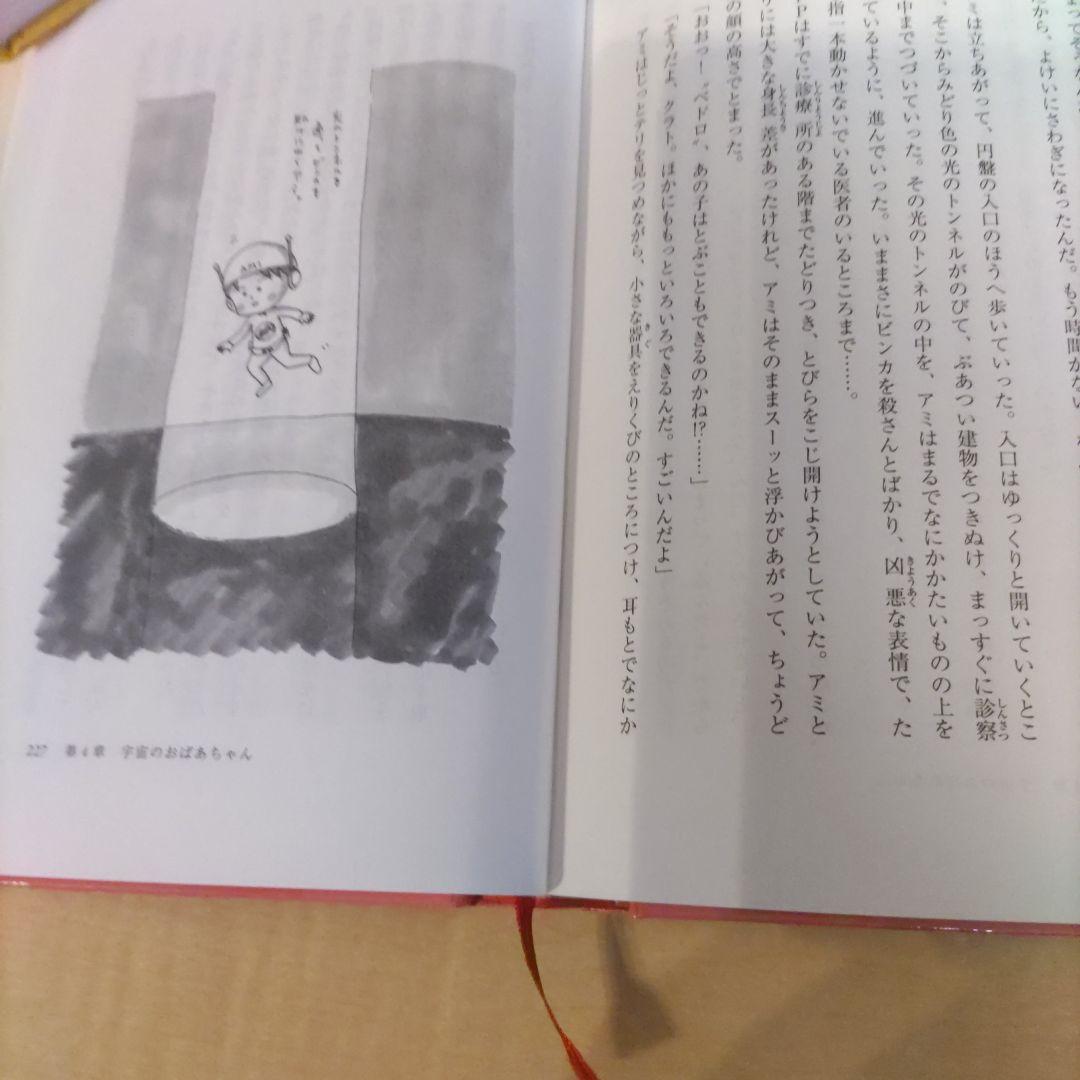 だから、よけいにさわぎになったんだ。もう時間がない
ミは立ちあがって、円盤の入口のほうへ歩いていった。入口はゆっくりと開いていくとこ
、そこからみどり色の光のトンネルがのびて、ぶあつい建物をつきぬけ、まっすぐに診察
しんさつ
中までつづいていった。その光のトンネルの中を、アミはまるでなにかかたいものの上を
ているように、進んでいった。いままさにビンカを殺さんとばかり、凶悪な表情で、た
きょうあく
指一本動かせないでいる医者のいるところまで……。
Pはすでに診療所のある階までたどりつき、とびらをこじ開けようとしていた。アミと
しんりょうじょ
りには大きな身長差があったけれど、アミはそのままスーッと浮かびあがって、ちょうど
しんちょうさ
の顔の高さでとまった。
「おおっ！“ベドロ”、あの子はとぶこともできるのかね!?……」
「そうだよ、クラト。ほかにももっといろいろできるんだ。すごいんだよ」
アミはじっとテリを見つめながら、小さな器具をえりくびのところにつけ、耳もとでなにか
きぐ
227 第4章 宇宙のおばあちゃん